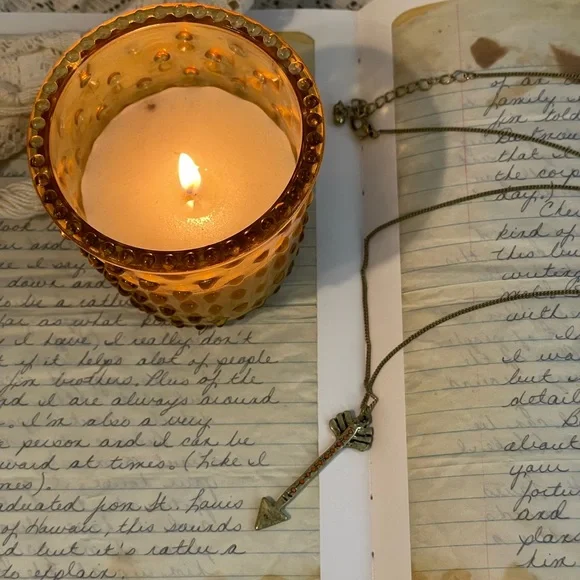 look
ur and
e I say
down and
o be a rathe
far as what
y I have, I really don't
t if it helps alot of people
I'm brothers. Plus of the
nd I are always around
e. I'm also a very
e person and I can be
ward at times. (Like I
mes).
aduated from St. Louis
of Hawaii, this sounds
d but it's rather a
to explain.
of an
family
I'm told
that I
the corp
day.)
Che
kind of
this
writing
with
I wa
but
detail
about
your
fortu
and
plans
him